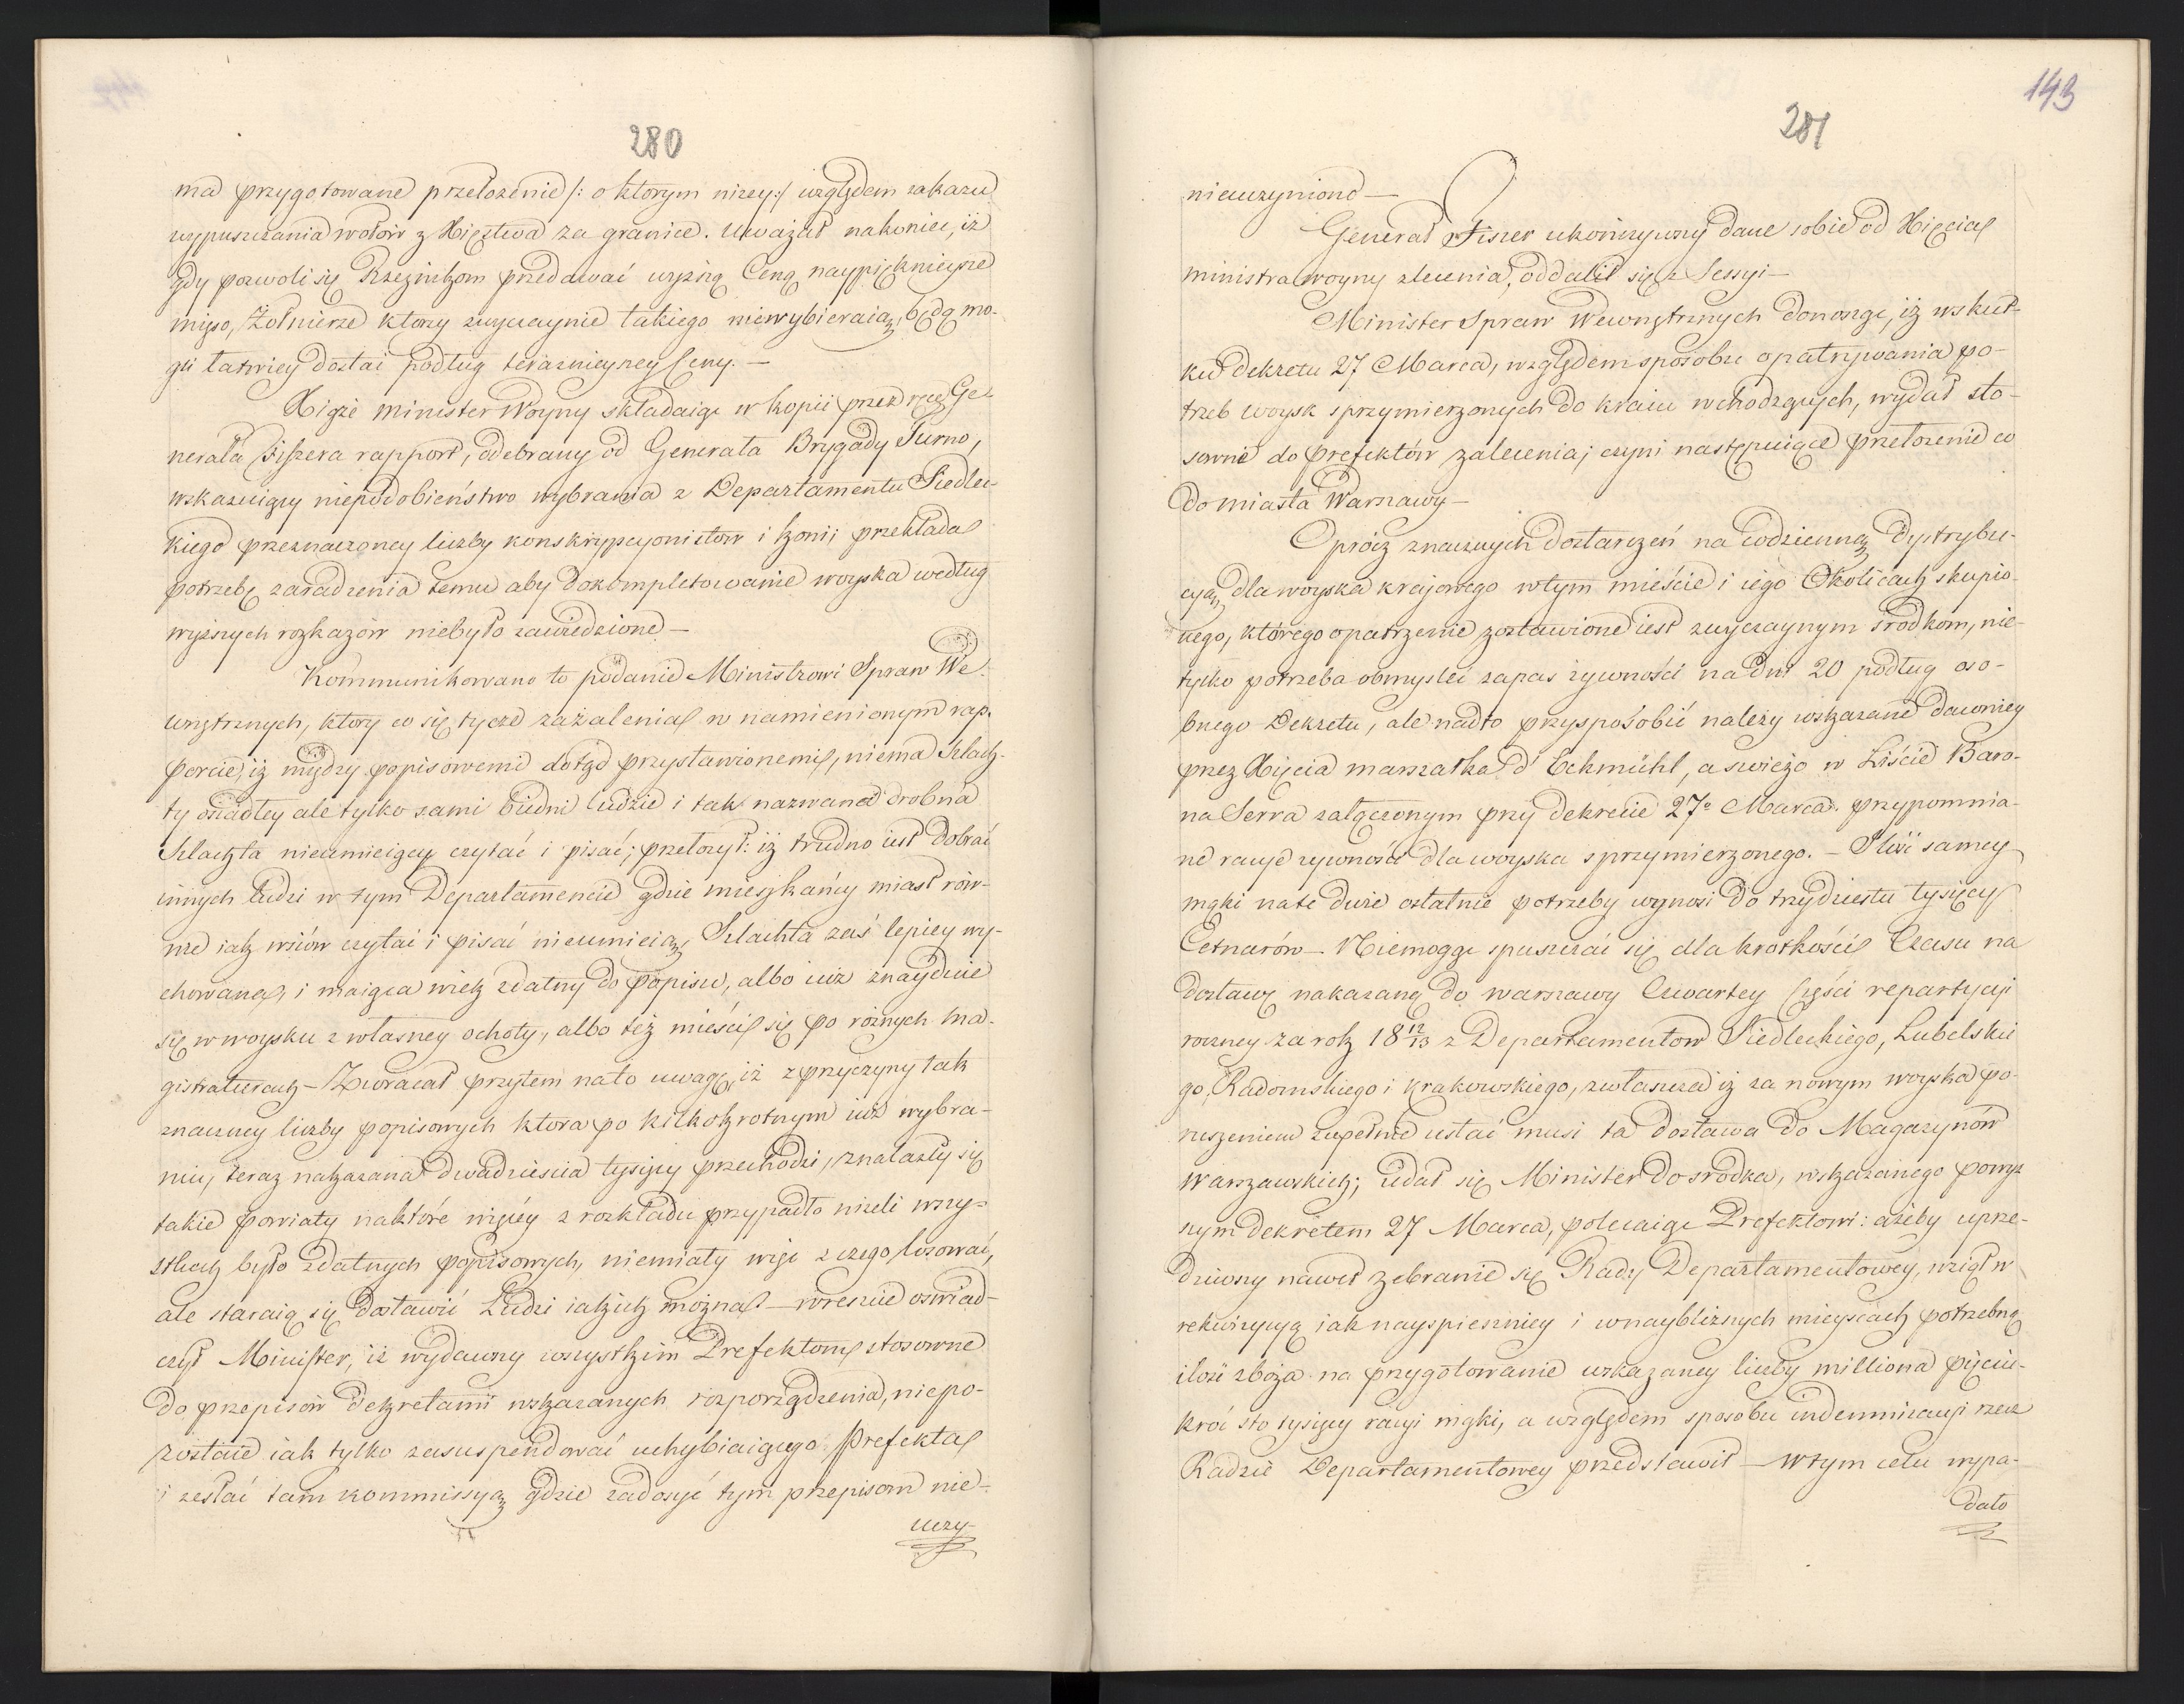 280
ma przygotowane przełożenie /: o ktorym niżey :/ względem zakazu
wypuszczania wołów z Xięztwa za granice. Uważał nakoniec, iż
gdy pozwoli się Rzeźnikom przedawać wyższą Ceną naypięknieysze
mięso, Żołnierze ktorzy zwyczaynie takiego niewybieraią, będą mo-
gli łatwiey dostać podług teraznieyszey Ceny. —
Xiąże Minister Woyny składaiąc w kopii przez ręce Ge-
nerała Fiszera rapport, odebrany od Generała Brygady Turno,
wskazuiący niepodobieństwo wybrania z Departamentu Siedlec-
kiego przeznaczoney liczby konskrypcyonistow i koni; przekłada
potrzebę zaradzenia temu aby dokompletowanie woyska według
wyższych rozkazów niebyło zawiedzione —
Kommunikowano to podanie Ministrowi Spraw We-
wnętrznych, ktory co się tycze zażalenia w namienionym rap-
porcie, iż między popisowemi dotąd przystawionemi, niema Szlach-
ty osiadłey ale tylko sami biedni ludzie i tak nazwana drobna
Szlachta nieumieiący czytać i pisać; przełożył: iż trudno iest dobrać
innych ludzi w tym Departamencie gdzie mieszkańcy miast rów-
nie iak wsiów czytać i pisać nieumieią, Szlachta zaś lepiey wy-
chowana, i maiąca wiek zdatny do popisu, albo iuż znayduie
się w woysku z własney ochoty, albo też mieści się po różnych Ma-
gistraturach — Zwracał przytem na to uwagę, iż z przyczyny tak
znaczney liczby popisowych ktora po kilkokrotnym iuż wybra-
niu, teraz nakazana dwadzieścia tysięcy przechodzi, znalazły się
takie powiaty na które więcey z rozkładu przypadło niżeli wszy-
stkich było zdatnych popisowych, niemiały więc z czego losować,
ale staraią się dostawić Ludzi iakich można — wreszcie oświad-
czył Minister, iż wydawszy wszystkim Prefektom stosowne
do przepisów dekretami wskazanych rozporządzenia, niepo-
zostaie iak tylko zasuspendować uchybiaiącego Prefekta
i zesłać tam kommissyą gdzie zadosyć tym przepisom nie-
uczy-
143
281
nieuczyniono —
Generał Fiszer ukończywszy dane sobie od Xięcia
Ministra Woyny zlecenia, oddalił się z Sessyi —
Minister Spraw Wewnętrznych donosząc, iż wskut-
ku dekretu 27 Marca, względem sposobu opatrywania po-
trzeb woysk sprzymierzonych do kraiu wchodzących, wydał sto-
sowne do prefektów zalecenia; czyni następuiące przełożenie co
do miasta Warszawy —
Oprócz znacznych dostarczeń na codzienną dystrybu-
cyą dla woyska krajowego w tym mieście i iego Okolicach skupio-
nego, którego opatrzenie zostawione iest zwyczaynym środkom, nie-
tylko potrzeba obmyslić zapas żywności na dni 20 podług oso-
bnego Dekretu, ale nadto przysposobić należy wskazane dawniey
przez Xięcia marszałka d'Eckmühl, a świeżo w Liście Baro-
na Serra załączonym przy dekrecie 27o Marca. przypomnia-
ne racye żywności dla woyska sprzymierzonego. — Ilość samey
mąki na te dwie ostatnie potrzeby wynosi do trzydziestu tysięcy
Cetnarów — Niemogąc spuszczać się dla krotkości Czasu na
dostawę nakazaną do Warszawy Czwartey części repartycyi
roczney za rok 18 12/13 z Departamentow Siedleckiego, Lubelskie
go, Radomskiego i Krakowskiego, zwłaszcza iż za nowym woyska po-
ruszeniem zupełnie ustać musi ta dostawa do Magazynów
Warszawskich; udał się Minister do środka, wskazanego powyż
szym dekretem 27 Marca, polecaiąc Prefektowi: ażeby uprze-
dziwszy nawet zebranie się Rady Departamentowey, wziął w
rekwizycyą iak nayspieszniey i w naybliższych mieyscach potrzebną
ilość zboża na przygotowanie wskazaney liczby milliona pięciu-
kroć sto tysięcy racyi mąki, a względem sposobu indemnizacyi rzecz
Radzie Departamentowey przedstawił — W tym celu wypa-
dało